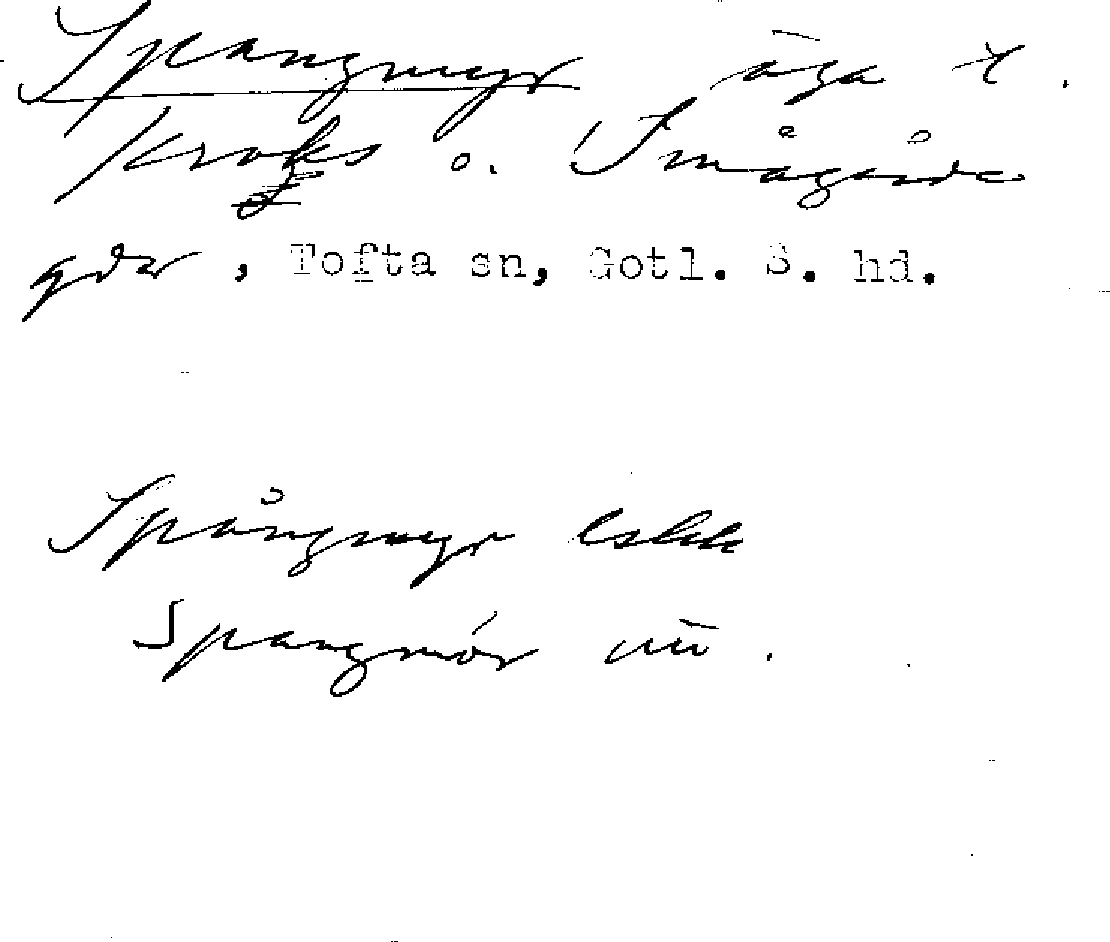 Spangmyr äga t.
Kroks o. Smågårde
gdar, Tofta sn, Gotl. S. hd.
Spångmyr
Spangmör nu.